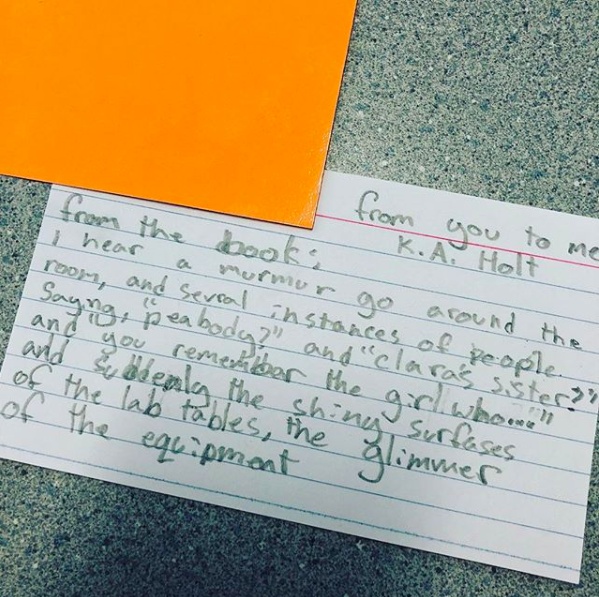 from you to me
K.A. Holt
from the book:
I hear a murmur go around the
room, and sevral instances of people
Saying, "peabody?" and "clara's sister?"
and "O you remember the girl who..."
and suddenly the shiny surfases
of the lab tables, the glimmer
of the equipment